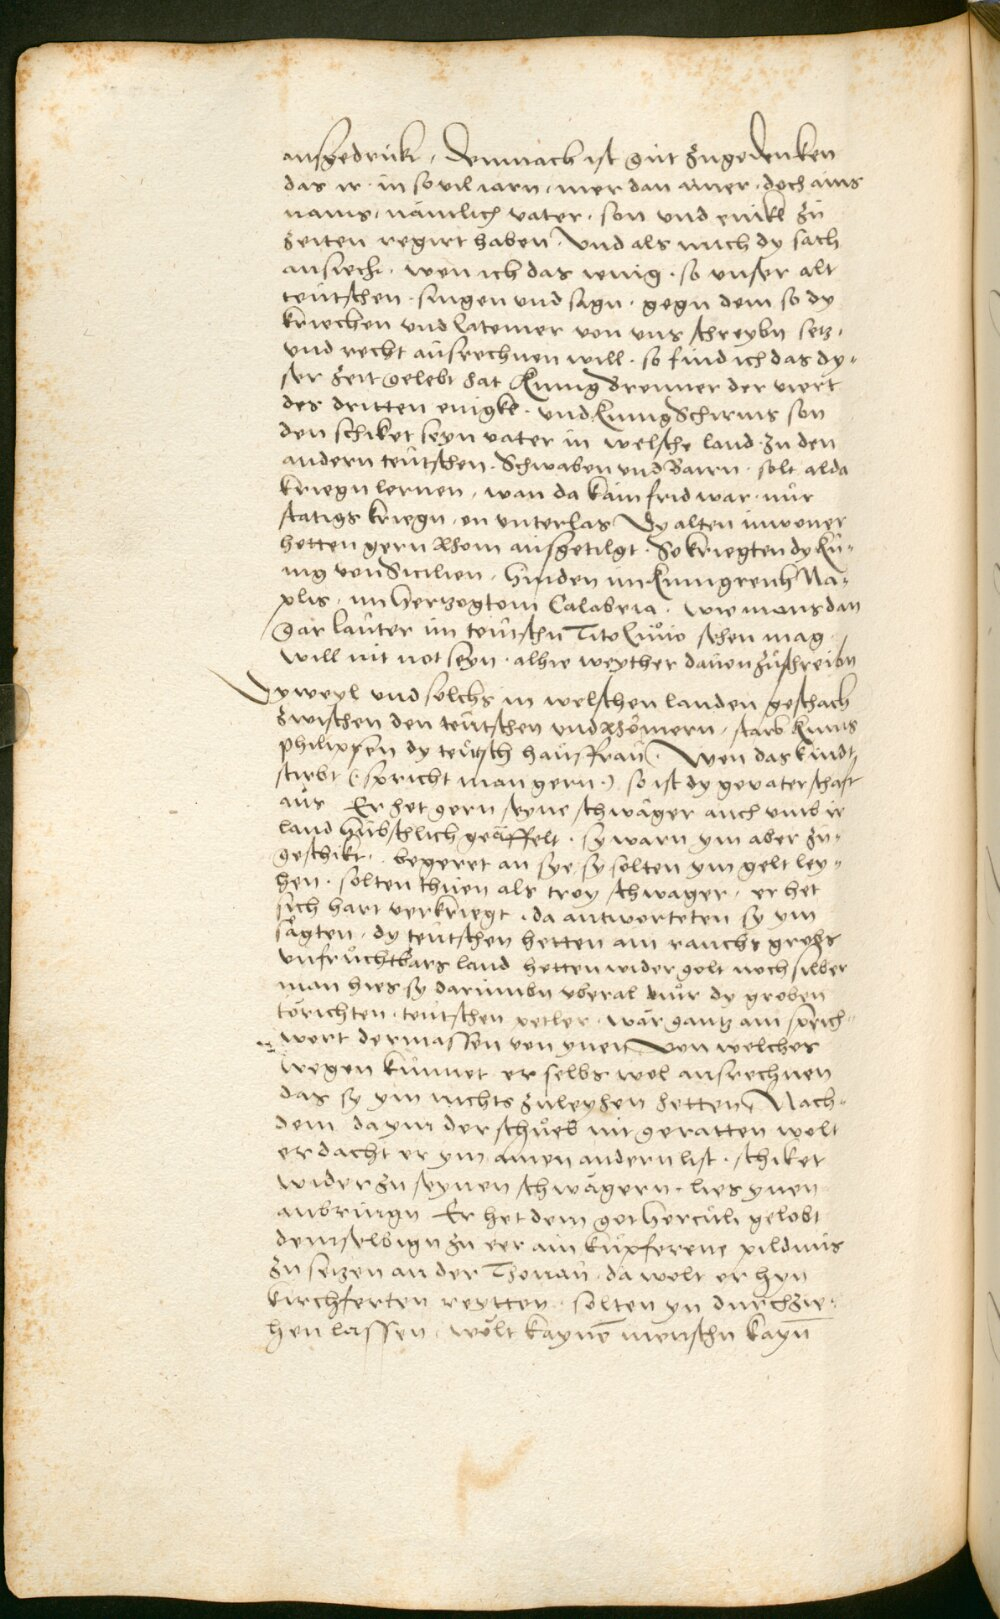 ausgedrukt, Demnach ist gut zugedenken
das ir in sovil iarn, mer dan ainer, doch ains
nams, nämlich vater, son und enikl zů
zeiten regirt haben. Und als mich dy sach
ansiecht, wen ich das wenig, so unser alt
teutschen singen und sagn, gegn dem so dy
kriechen und lateiner von uns schreybn setz,
und recht ausrechnen will, so find ich das dy-
ser zeit gelebt hat Kunig Brenner der viert
des dritten enigke, und Kunig Schirms son
den schiket seyn vater in welsche land zu den
andern teutschen Schwaben und Bairn, solt alda
kriegn lernen, wan da kain frid war, nur
statigs kriegn, on unterlas Dy alten inwoner
hetten gern Rhom ausgetilgt. So kriegten dy Kü-
nig von Sicilien, hinden im Kunigreich Na-
plis, im hertzogtom Calabria, wie mans dan
gar lauter im teutschn Tito Livio sehen mag
will nit not seyn, alhie weyther davon zuschreibn
Dyweyl und solchs in welschen landen geschach
zwischen den teutschen und Rhömern, starb Kunig
philipsen dy teutsch hausfrau. Wen das kindt
stirbt (spricht man gern) so ist dy gevaterschaft
aus Er het gern seyne schwäger auch umb ir
land hübschlich geäffelt, sy warn ym aber zu-
geschikt, begeret an sye, sy solten ym gelt ley-
hen, solten thuen als trey schwager, er het
sich hart verkriegt, da antworteten sy ym
sagten, dy teutschen hetten ain rauchs grobs
unfruchtbars land hetten wider golt noch silber
man hies sy darumbn uberal nur dy groben
törichten teutschen petler, wär gantz ain sprich-
wort dermassen von ynen, Von welches
wegen kunnet er selbs wol ausrechnen
das sy ym nichts zuleyhen hetten, Nach-
dem da ym der schueb nit geratten wolt
erdacht er ym ainen andern list, schiket
wider zu seynen schwägern, lies ynen
anbringn Er het dem got herculi gelobt
demselbign zu eer ain kupferene pildnus
zu setzen an der Thonau, da wolt er hyn
kirchferten reytten, solten yn durchzie-
hen lassen, wölt kaynē menschn kayn̄